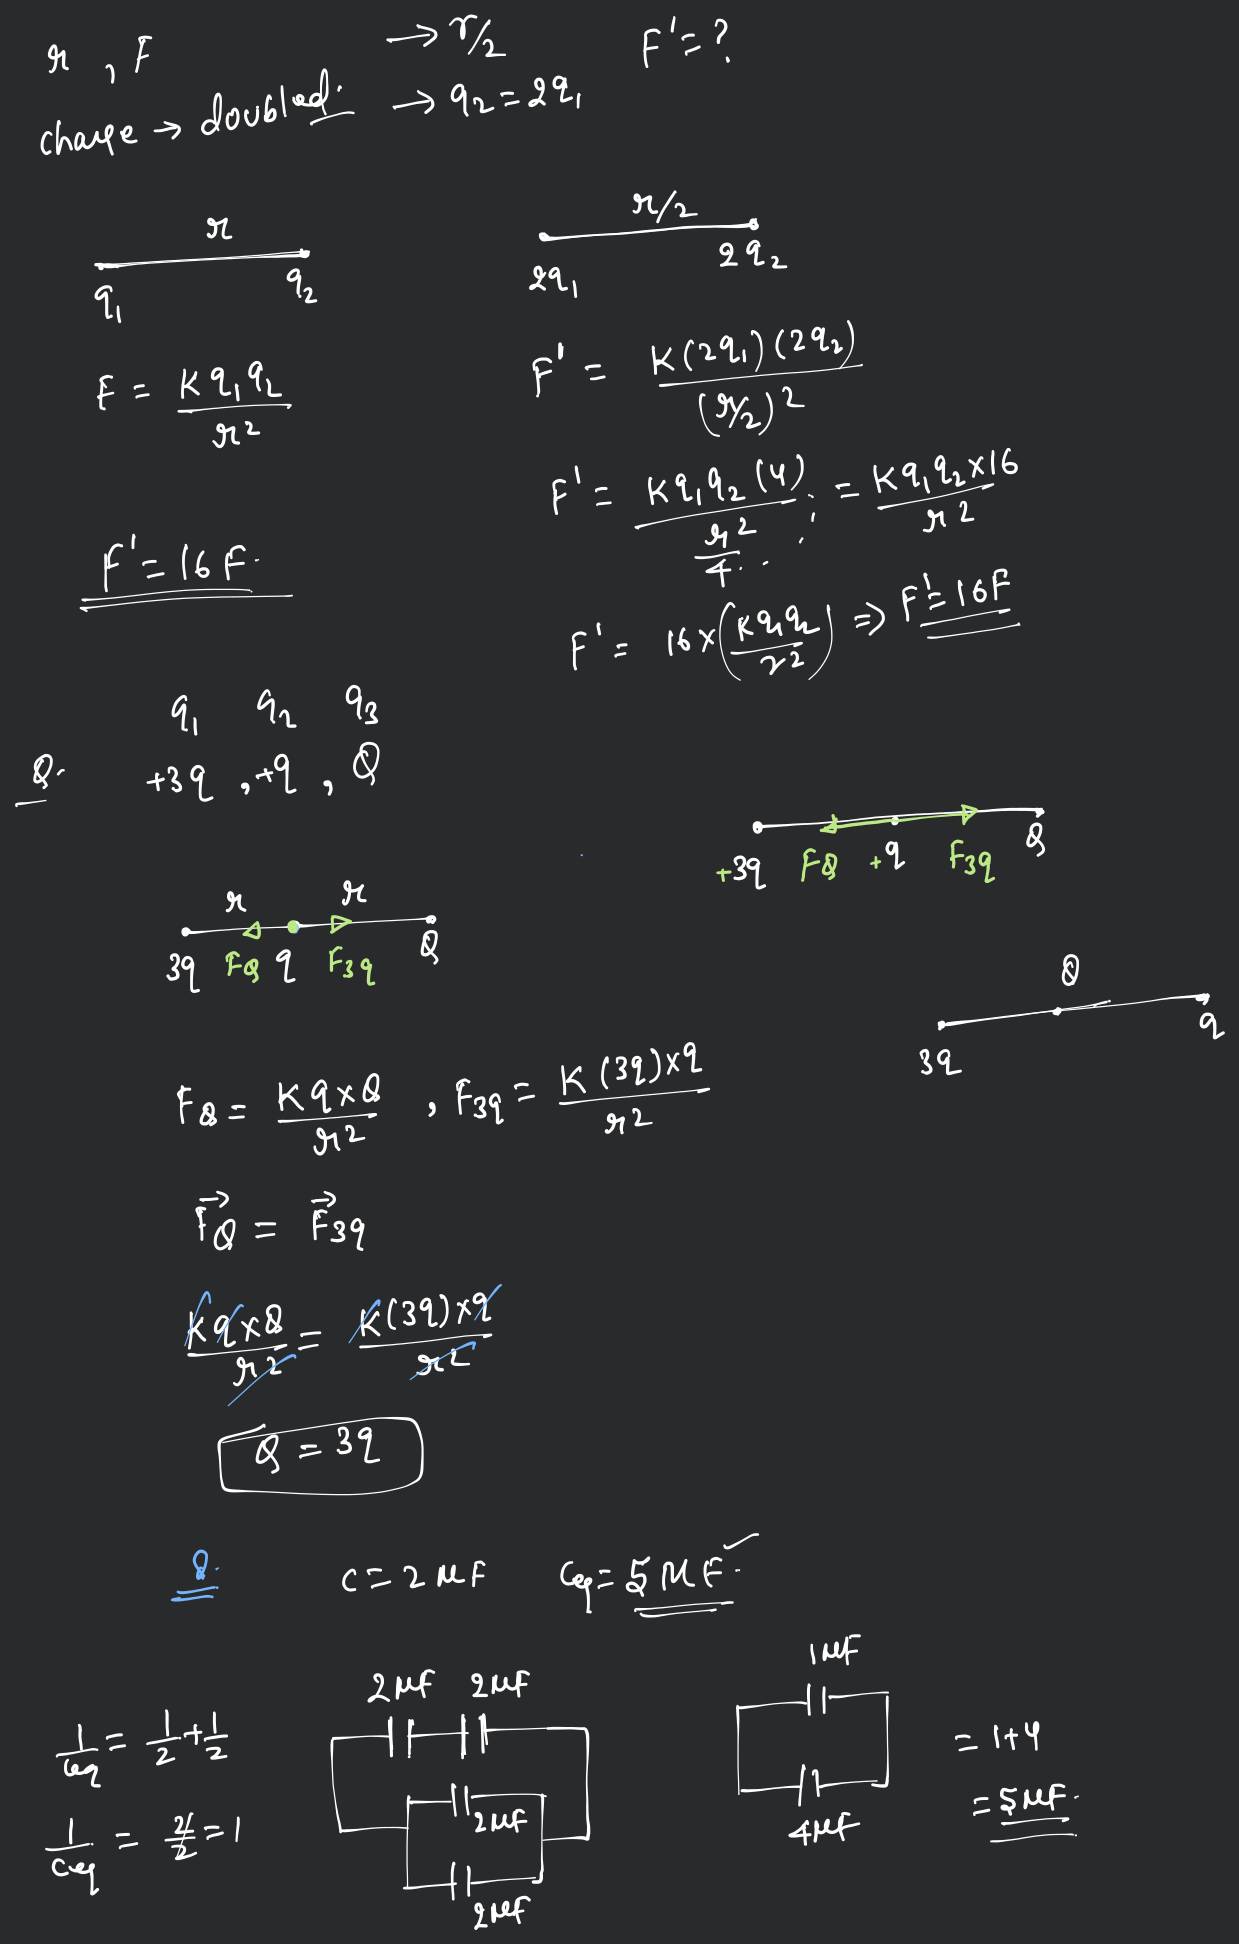 r , F → r/2 F' = ?
charge → doubled. → q2 = 2q1
r r/2
q1 q2 2q1 2q2
F = K q1 q2 / r2 F' = K(2q1)(2q2) / (r/2)2
F' = K q1 q2 (4) / r2/4 = K q1 q2 × 16 / r2
F' = 16 F.
F' = 16 × (K q1 q2 / r2) ⇒ F' = 16F
q1 q2 q3
Q. +3q , +q , Q
+3q FQ +q F3q Q
r r
3q FQ q F3q Q
Q
3q q
FQ = K q × Q / r2 , F3q = K (3q) × q / r2
FQ = F3q
K q × Q / r2 = K (3q) × q / r2
Q = 3q
Q. C = 2 μF Ceq = 5 μF.
1μF
2μF 2μF
1/Ceq = 1/2 + 1/2
= 1+4
2μF
= 5μF.
1/Ceq = 2/2 = 1
4μF
2μF